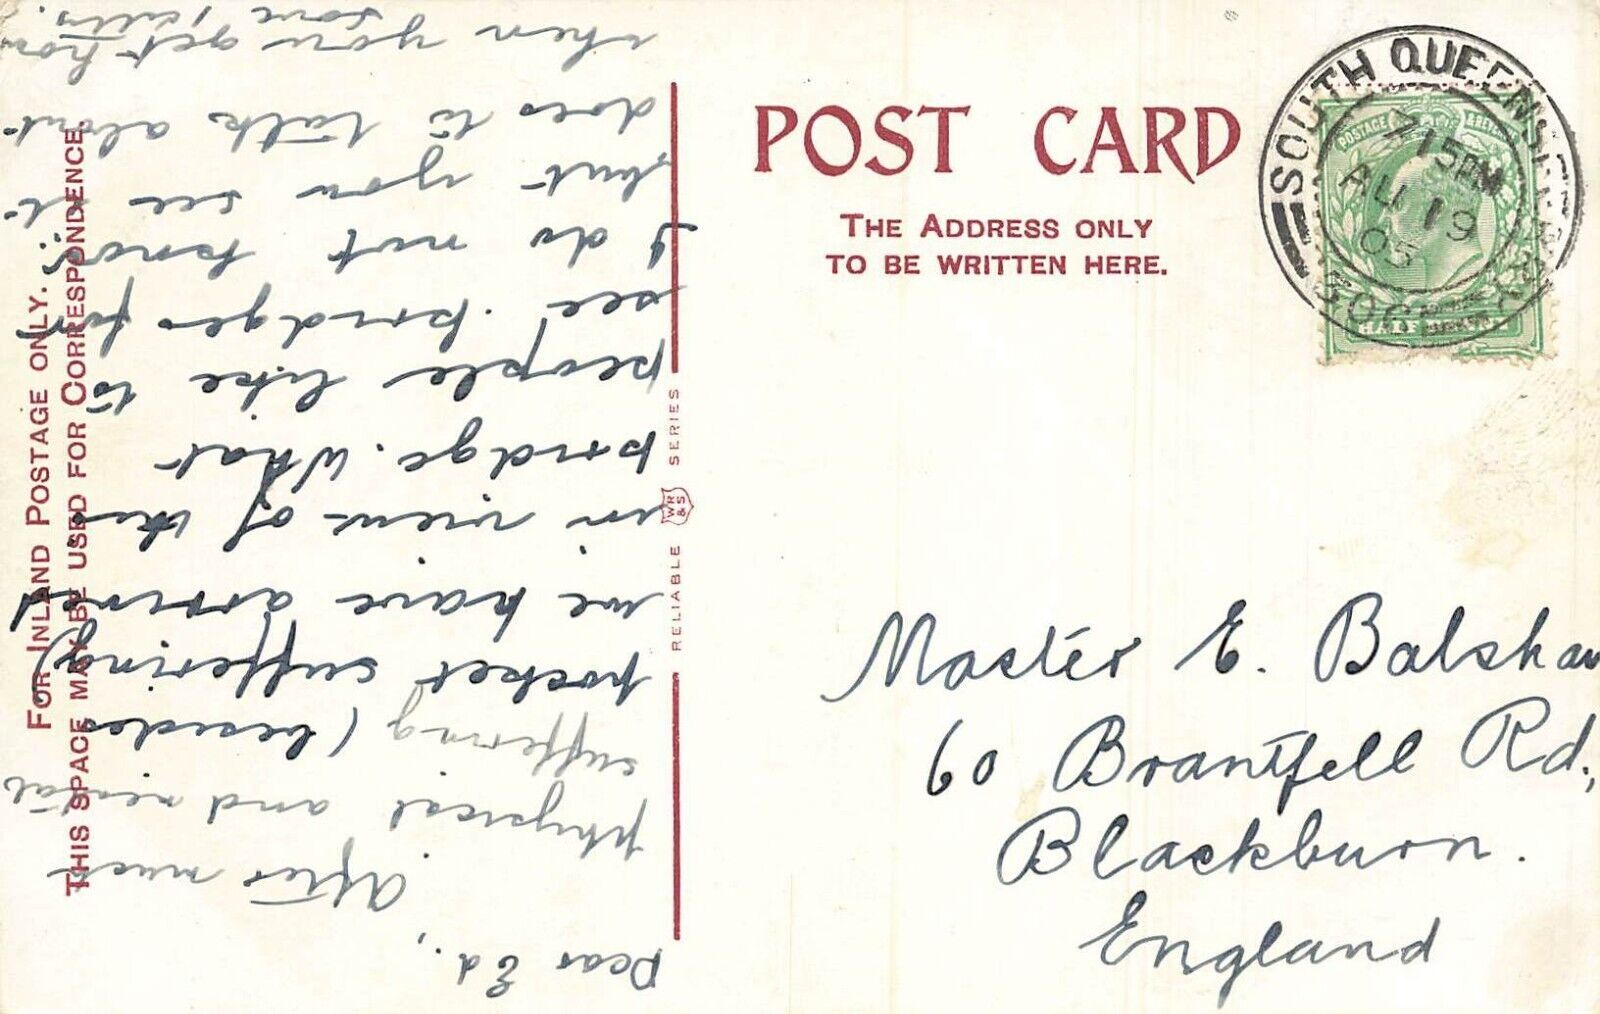 POST CARD
THE ADDRESS ONLY
TO BE WRITTEN HERE.
SOUTH QUEENSFERRY
715PM
AU 19
05
POSTAGE
HALF PENNY
Master E. Balshaw
60 Brantfell Rd,
Blackburn.
England
FOR INLAND POSTAGE ONLY.
THIS SPACE MAY BE USED FOR CORRESPONDENCE.
RELIABLE WR&S SERIES
Dear Ed.,
After much
physical and mental
suffering
(besides
pocket suffering)
we have arrived
in view of the
bridge. What
people like to
see bridges for
I do not know
but you see it
does to talk about
when you get hom